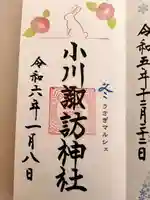 令和五年十二月三十二日
うさぎマルシェ
小川諏訪神社
令和六年一月八日